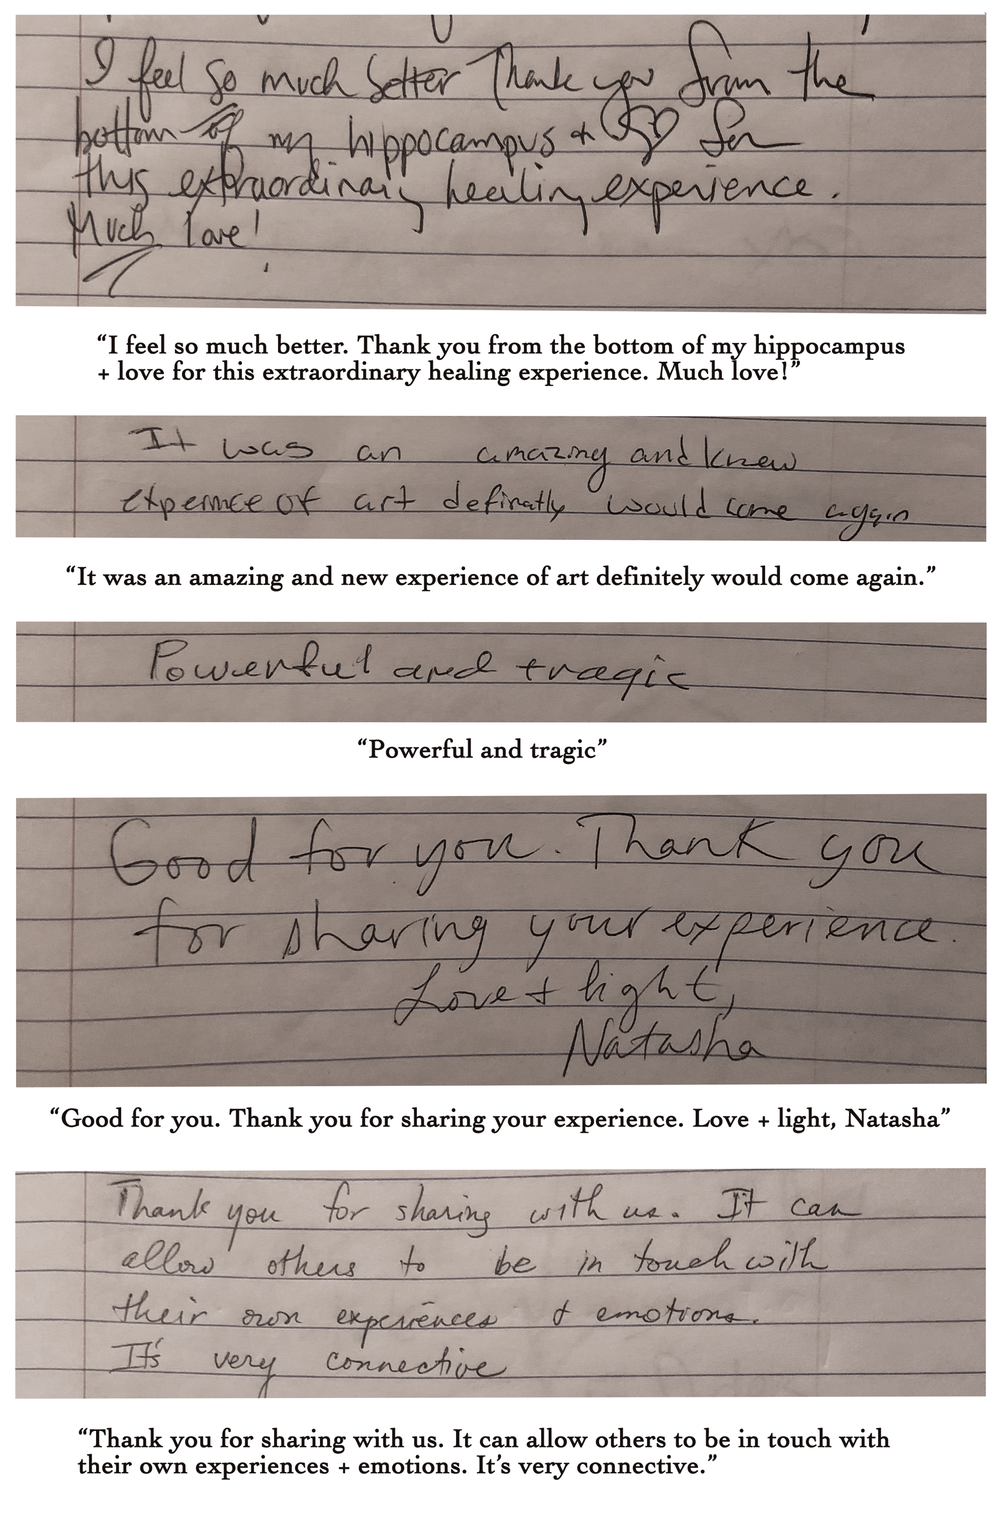 I feel so much better Thank you from the
bottom of my hippocampus + for
this extraordinary healing experience.
Much love!
“I feel so much better. Thank you from the bottom of my hippocampus
+ love for this extraordinary healing experience. Much love!”
It was an amazing and knew
experience of art definatly would come again
“It was an amazing and new experience of art definitely would come again.”
Powerful and tragic
“Powerful and tragic”
Good for you. Thank you
for sharing your experience.
Love + light,
Natasha
“Good for you. Thank you for sharing your experience. Love + light, Natasha”
Thank you for sharing with us. It can
allow others to be in touch with
their own experiences & emotions.
It's very connective
“Thank you for sharing with us. It can allow others to be in touch with
their own experiences + emotions. It’s very connective.”